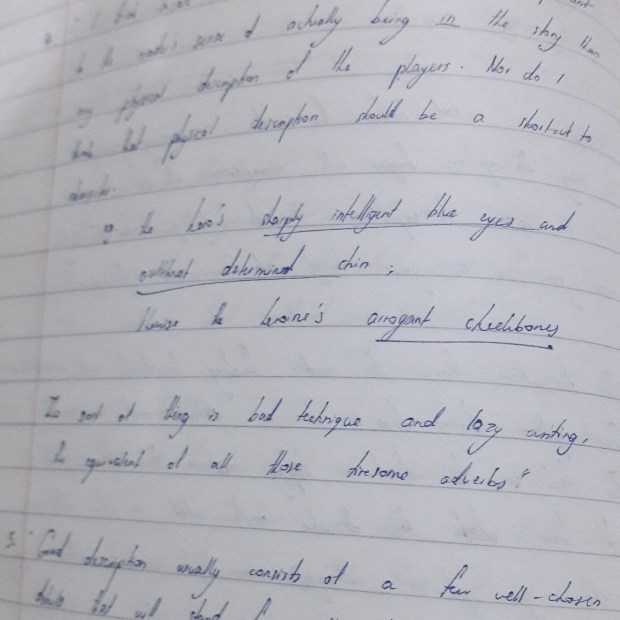 to the reader's sense of actually being in the story than
any physical description of the players. Nor do I
think that physical description should be a shortcut to
character.
eg the hero's sharply intelligent blue eyes and
outthrust determined chin;
likewise the heroine's arrogant cheekbones
This sort of thing is bad technique and lazy writing,
the equivalent of all those tiresome adverbs"
5. "Good description usually consists of a few well-chosen
details that will stand for